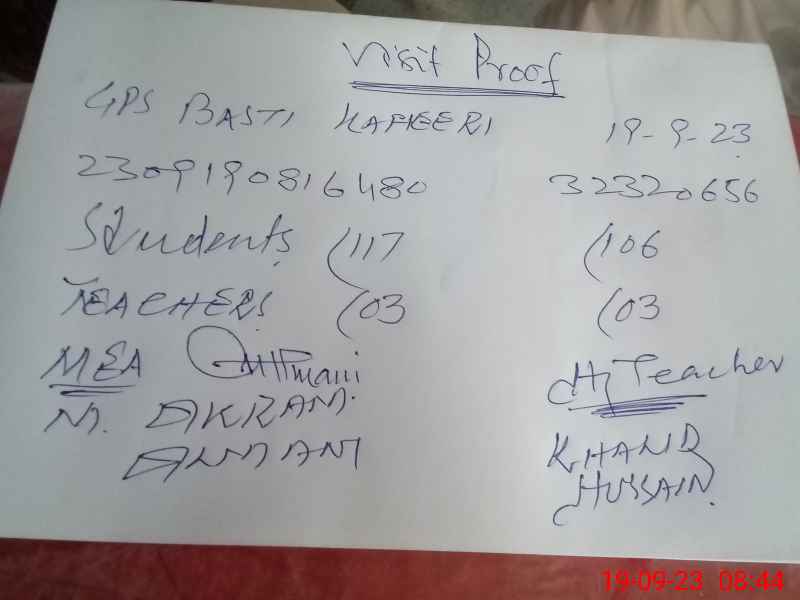 Visit Proof
GPS BASTI KAFEERI 19-9-23
2309190816480 32320656
Students (117 (106
TEACHERS (03 (03
MEA H/Teacher
M. AKRAM KHALID
HUSSAIN
19-09-23 08:44